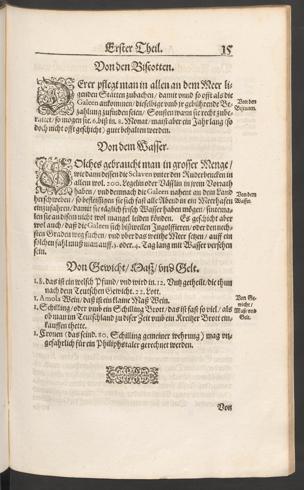 Erster Theil. 15
Von den Biscotten.
DErer pflegt man in allen an dem Meer li-
genden Stätten zubachen / damit wann so offt als die
Galeen ankommen / dieselbige umb jr gebührende Be-
zahlung zufinden seien / So ferrn wann sie recht zube-
raitet / so mögen sie 6. biß in 8. Monat / mancks aber ein Jahr lang (so
doch nicht offt geschicht) gut behalten werden.
Von den
Biscotten.
Von dem Wasser.
SOlches gebraucht man in grosser Menge /
wie dann dessen die Sclaven unter den Ruderbencken in
allem wol 200. Legeln oder Vässlin in jrem Vorrath
haben / und demnach die Galeen nahent an dem Land
herschweben / so befleissigen sie sich fast alle Abend in ein Meerhafen
einzufahren / damit sie täglich frisch Wasser haben mögen /
sie an disem nicht wol mangel leiden könden. Es geschicht aber
wol auch / daß die Galeen sich bißweilen Ingolfieren / oder den nech-
sten Graden weg suchen / und uber das weithe Meer schen / auff ein
solchen fahl muß man auff 3. oder 4. Tag lang mit Wasser versehen
sein.
Von dem
Wasser.
Von Gewicht / Maß / vnd Gelt.
1. ℔. das ist ein welsch Pfund / vnd wird in 12. Untz getheilt / die thun
nach dem Teutschen Gewicht 22. Lott.
1. Amola Wein / daß ist ein klaine Maß Wein.
1. Schilling / oder vmb ein Schilling Brott / das ist fast so viel / als
ob man im Teutschland zu diser Zeit vmb ein Kreitzer Brott ein-
kauffen thette.
1. Cronen (das seind 80. Schilling gemeiner wehrung) mag vn-
gefährlich für ein Philipsthaler gerechnet werden.
Von Ge-
wicht /
Maß vnd
Gelt.
Von